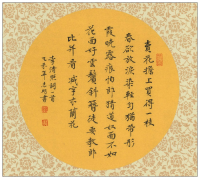 賣花擔上買得一枝
春欲放淚染輕勻猶帶彤
霞曉露痕怕郎猜道奴面不如
花面好雲鬢斜簪徒要教郎
比并看減字木蘭花
李清照詞一首